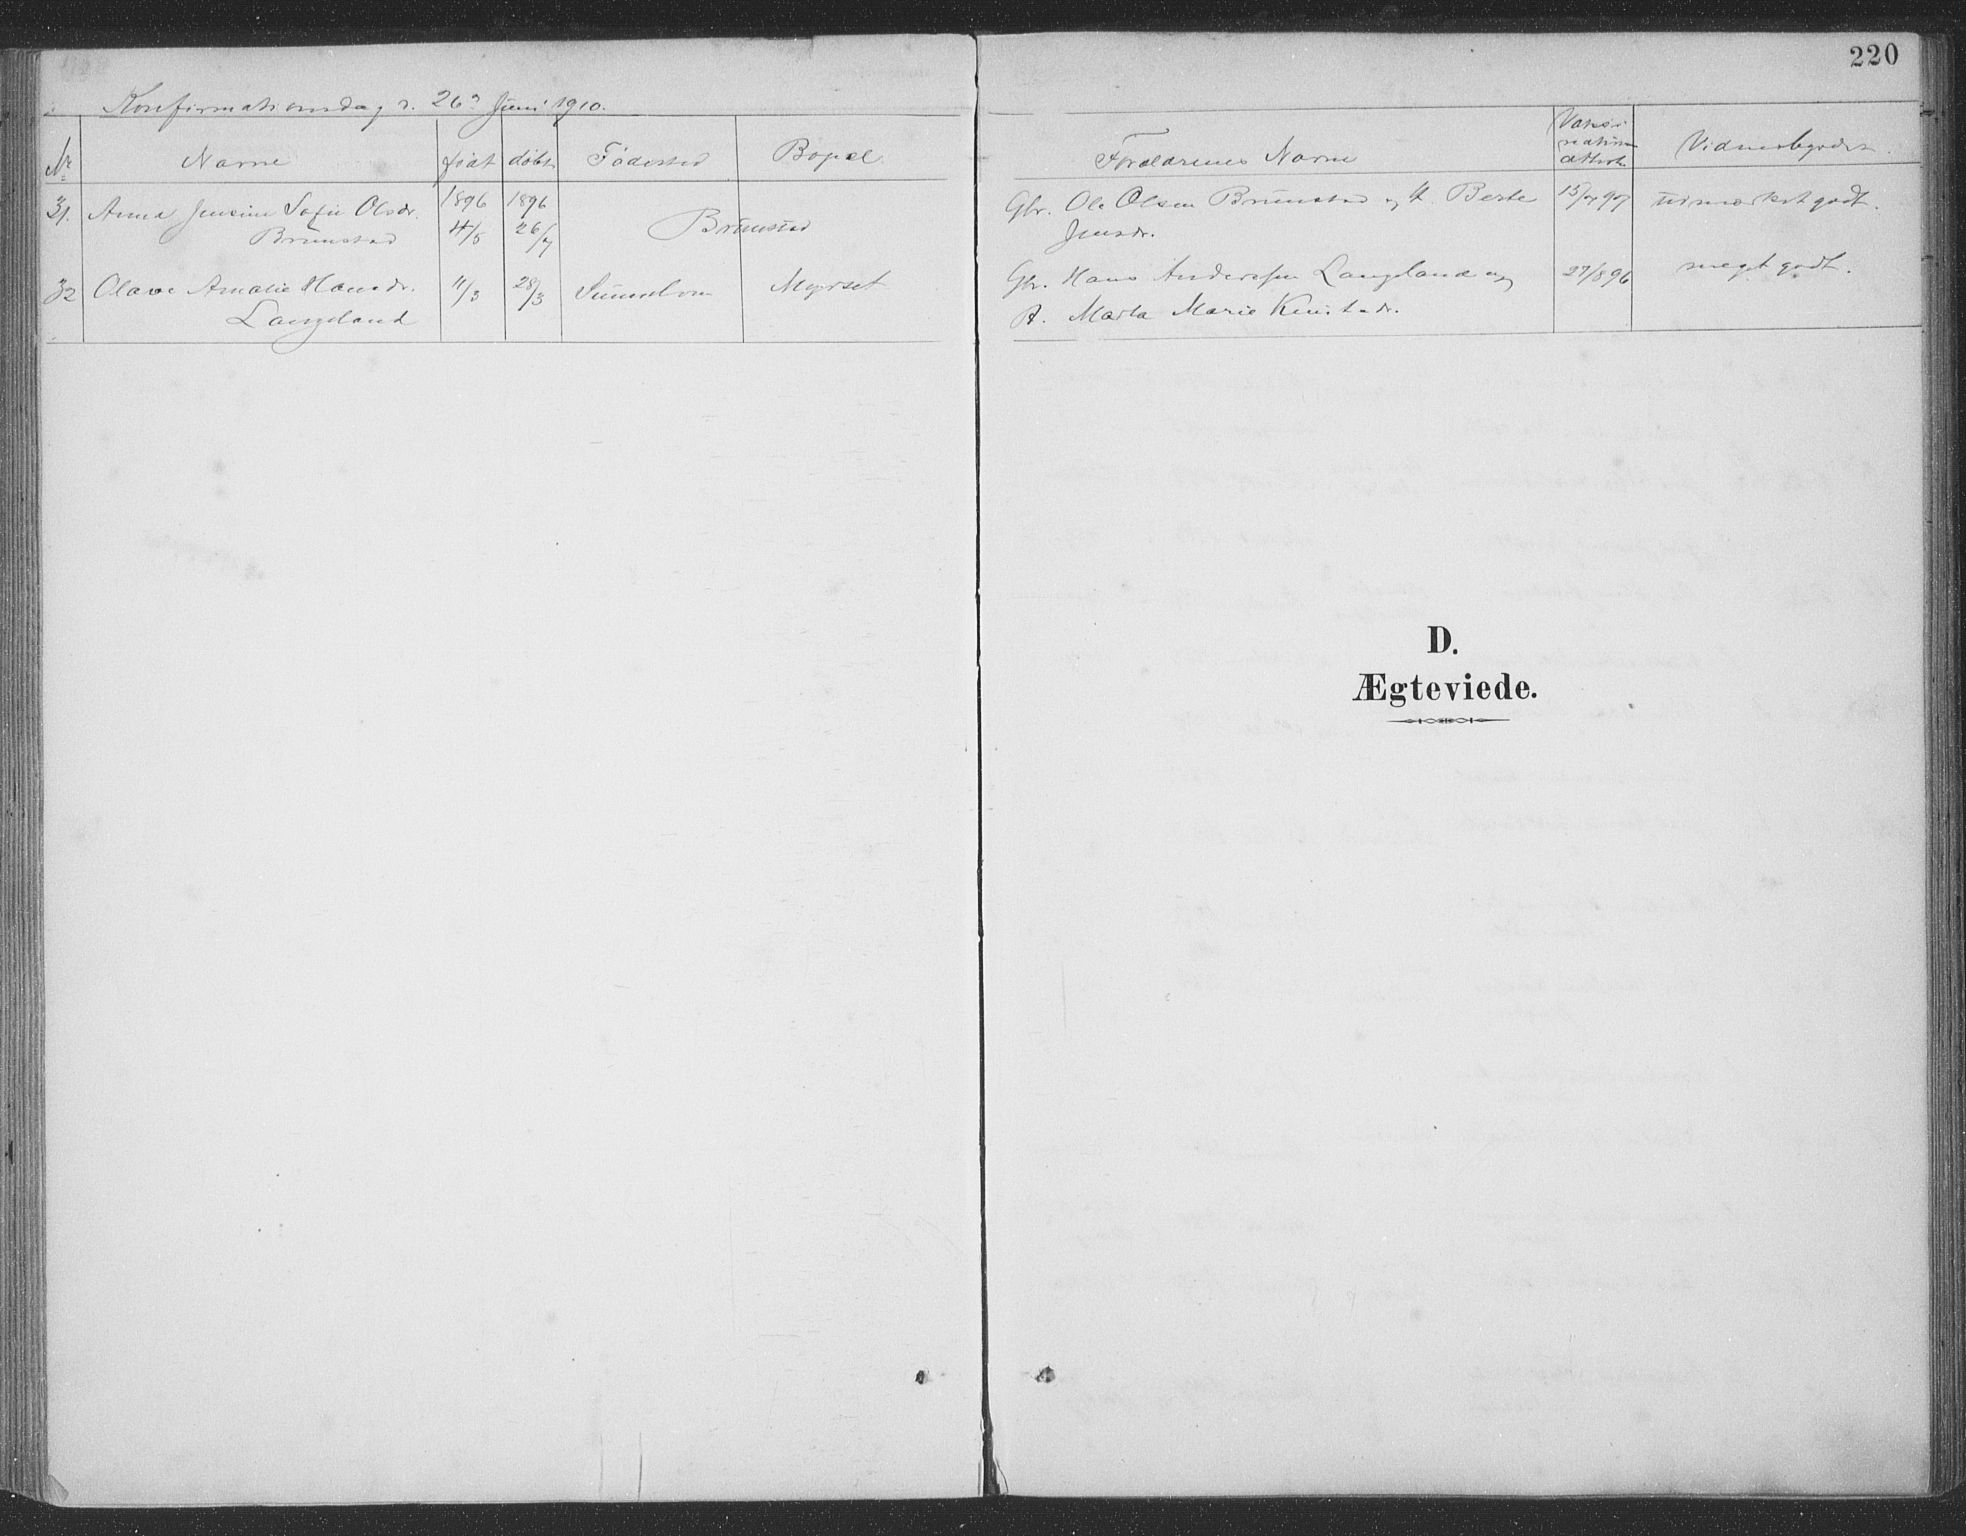 220
Konfirmationsdag d. 26de Juni 1910.
Nr. Navn født døbt Fødested Bopæl Forældrenes Navne Vaksinationsattest Vidnesbyrd
31. Anna Jensine Sofie Olsdr. 1896 1896 Brunstad Gbr. Ole Olsen Brunstad og H. Berte 15/7 97 udmærket godt.
Brunstad 4/5 26/7 Jensdr.
32 Olave Amalie Hansdr. 11/3 28/3 Myrset Gbr. Hans Anderssen Langeland og 27/8 96 meget godt.
Langeland A. Marta Marie Knutsdr.
D.
Ægteviede.